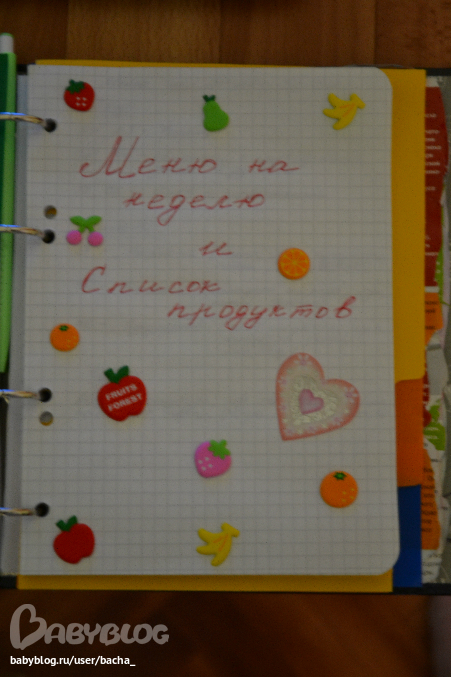 Меню на
неделю
и
Список
продуктов
FRUITS
FOREST
BABYBLOG
babyblog.ru/user/bacha_